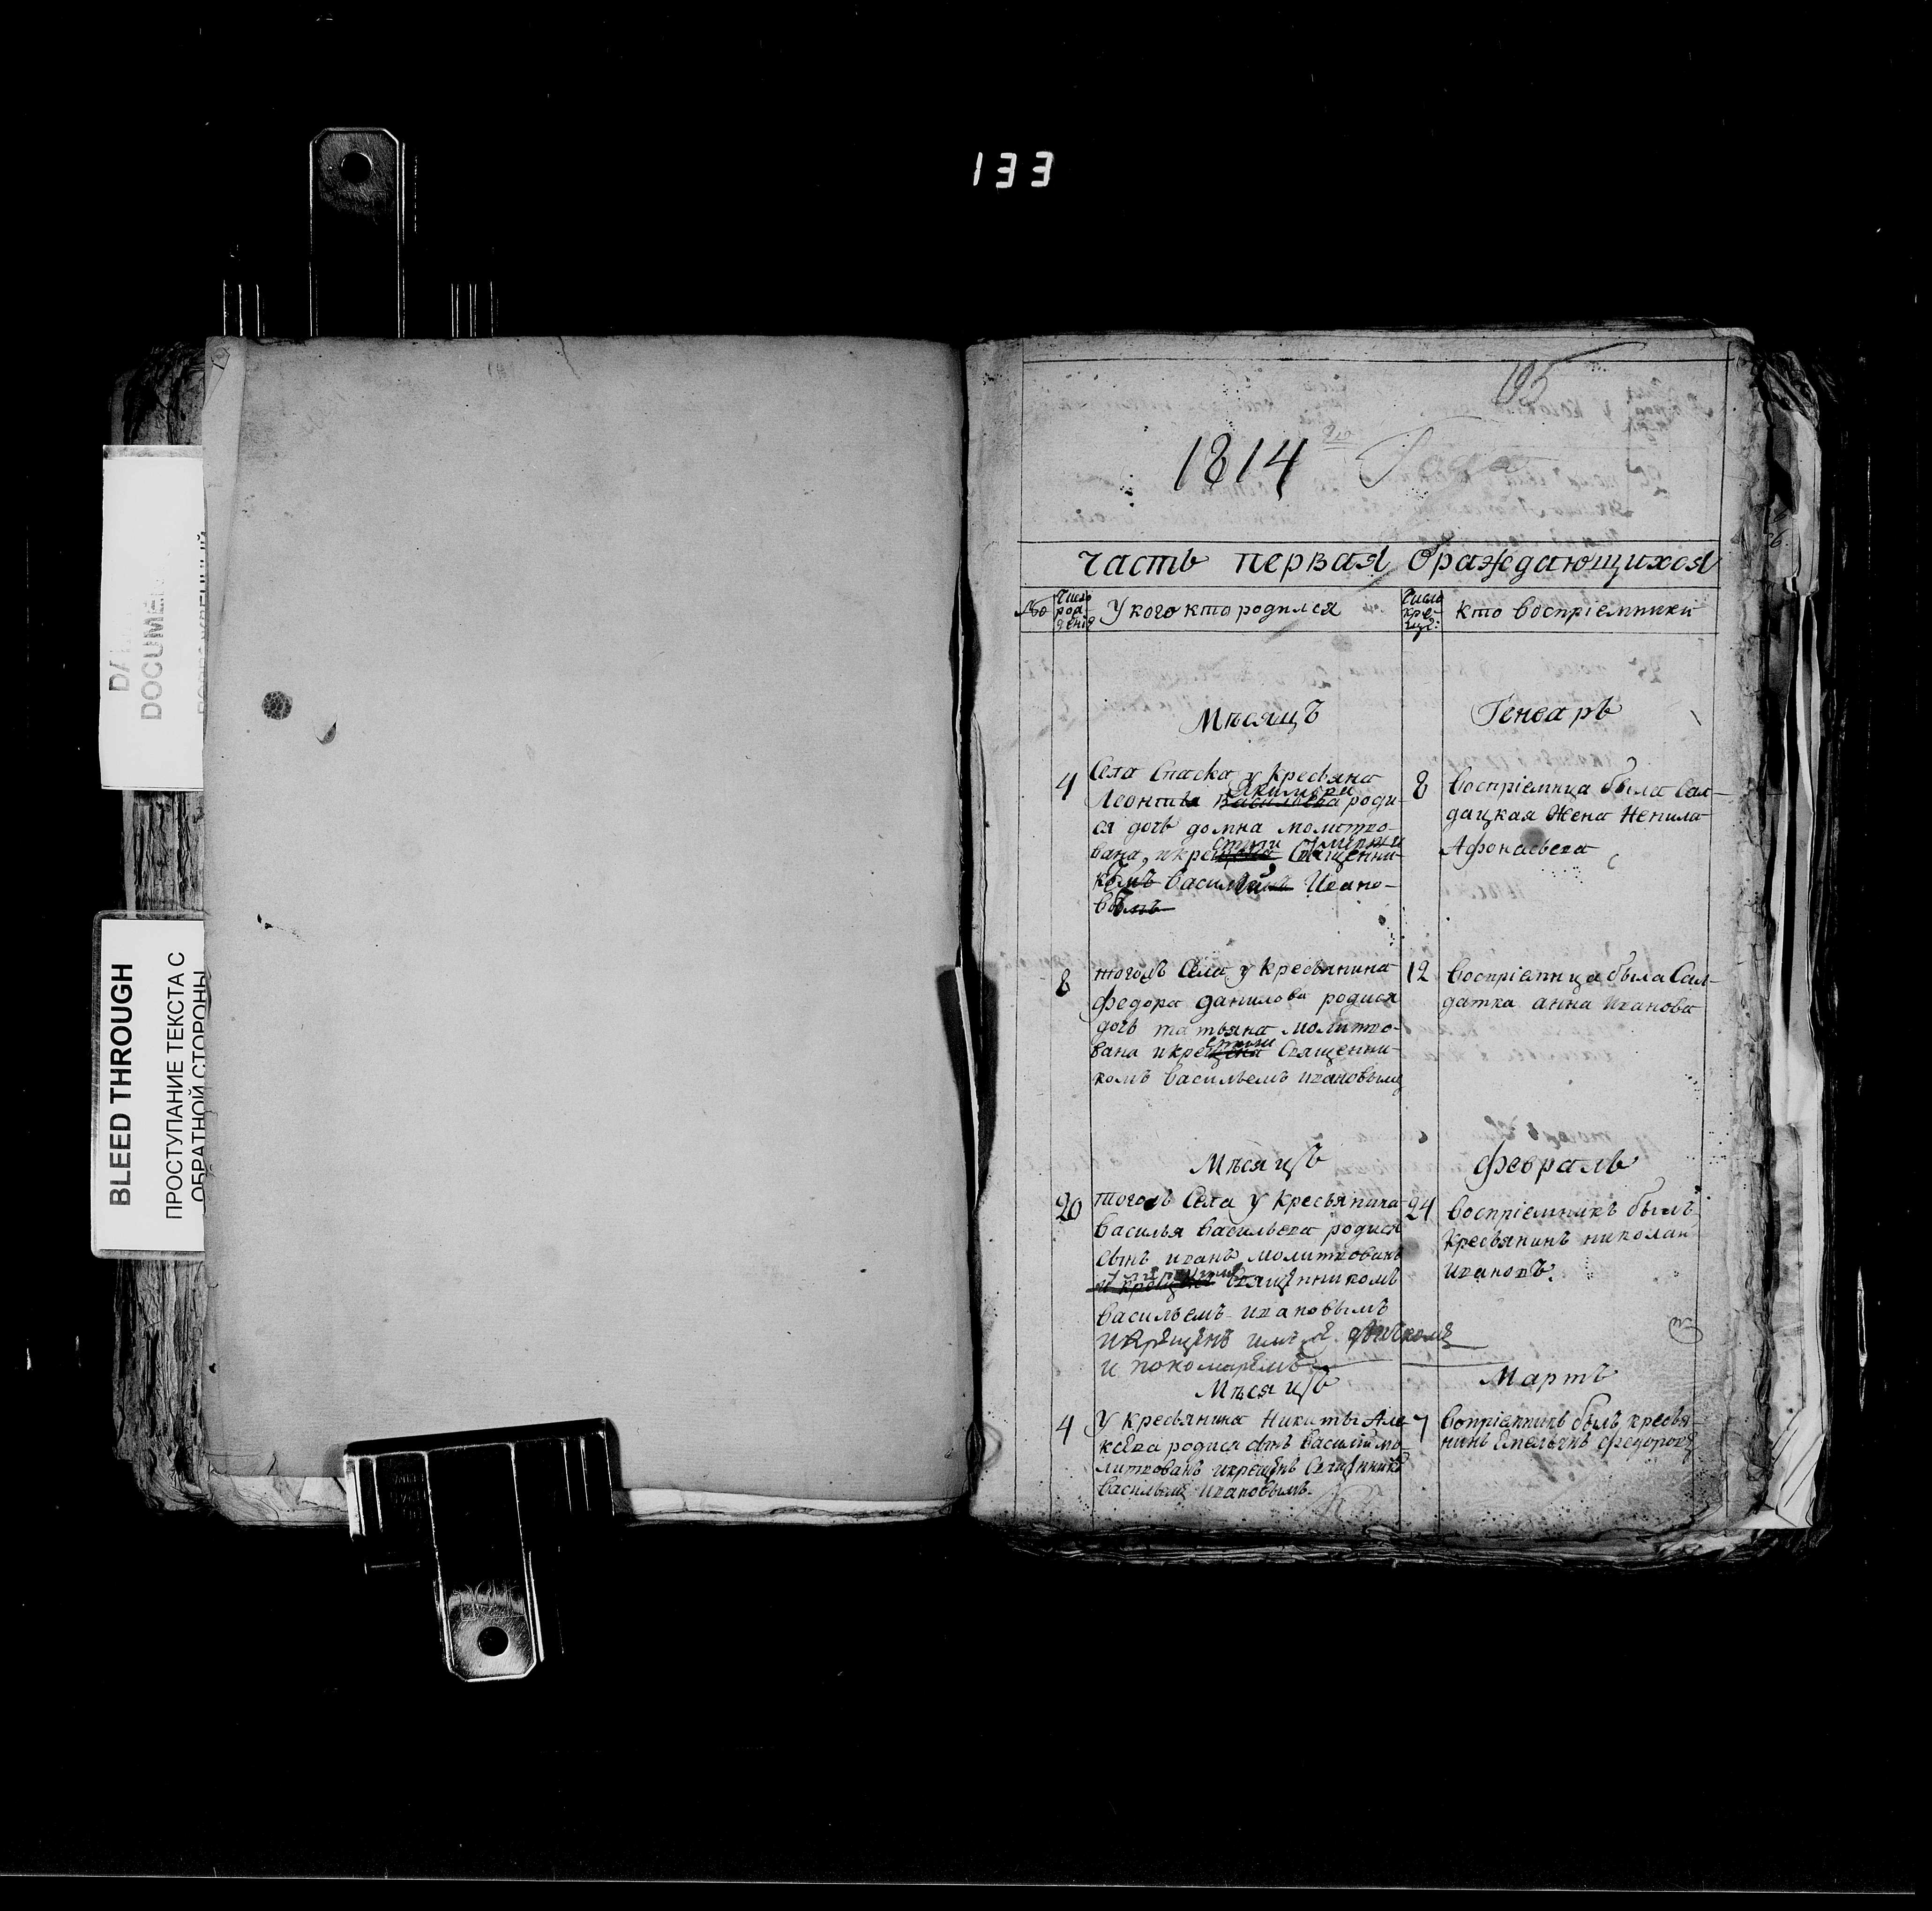 133
DOCUMEN
BLEED THROUGH
ПРОСТУПАНИЕ ТЕКСТА С
ОБРАТНОЙ СТОРОНЫ
195
1814 го Года
часть первая Ораждающихся
№ Число рождения У кого кто родился Число креще: кто воспріемники
Мѣсяцъ Генварь
4 Села Спаска у Кресьяна
Леонтья Васильева Якимова роди-
ся дочь домна молитво-
вана, и крещена Священни-
комъ Васильемъ Ивано-
вымъ
8 Воспріемница была Сал-
дацкая Жена Ненила
Афонасьева
8 тогожъ Села у кресьянина
федора данилова родися
дочь татьяна молитво-
вана и крещена Священни-
комъ Васильемъ ивановымъ
12 Воспріемница была Сал-
датка анна иванова
Мѣсяцъ февраль
20 тогожъ Села у кресьянина
Василья Васильева родися
сынъ иванъ молитвованъ
и крещенъ Священникомъ
Васильемъ ивановымъ
и крещенъ имъ
и пономаремъ
24 Воспріемникъ былъ
Кресьянинъ николай
ивановъ.
Мѣсяцъ Мартъ
4 У кресьянина Никиты Але-
ксева родися сынъ Василий мо-
литвованъ и крещенъ Священникъ
Васильемъ ивановымъ.
7 Вопріемникъ былъ кресья-
нинъ Емельянъ федоровъ